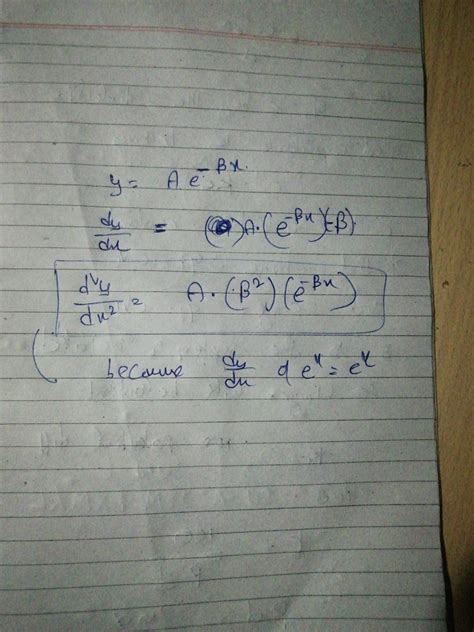 y = A e^-βx
dy/dx = A·(e^-βx)(-β)
d²y/dx² = A·(β²)(e^-βx)
because dy/dx d e^x = e^x